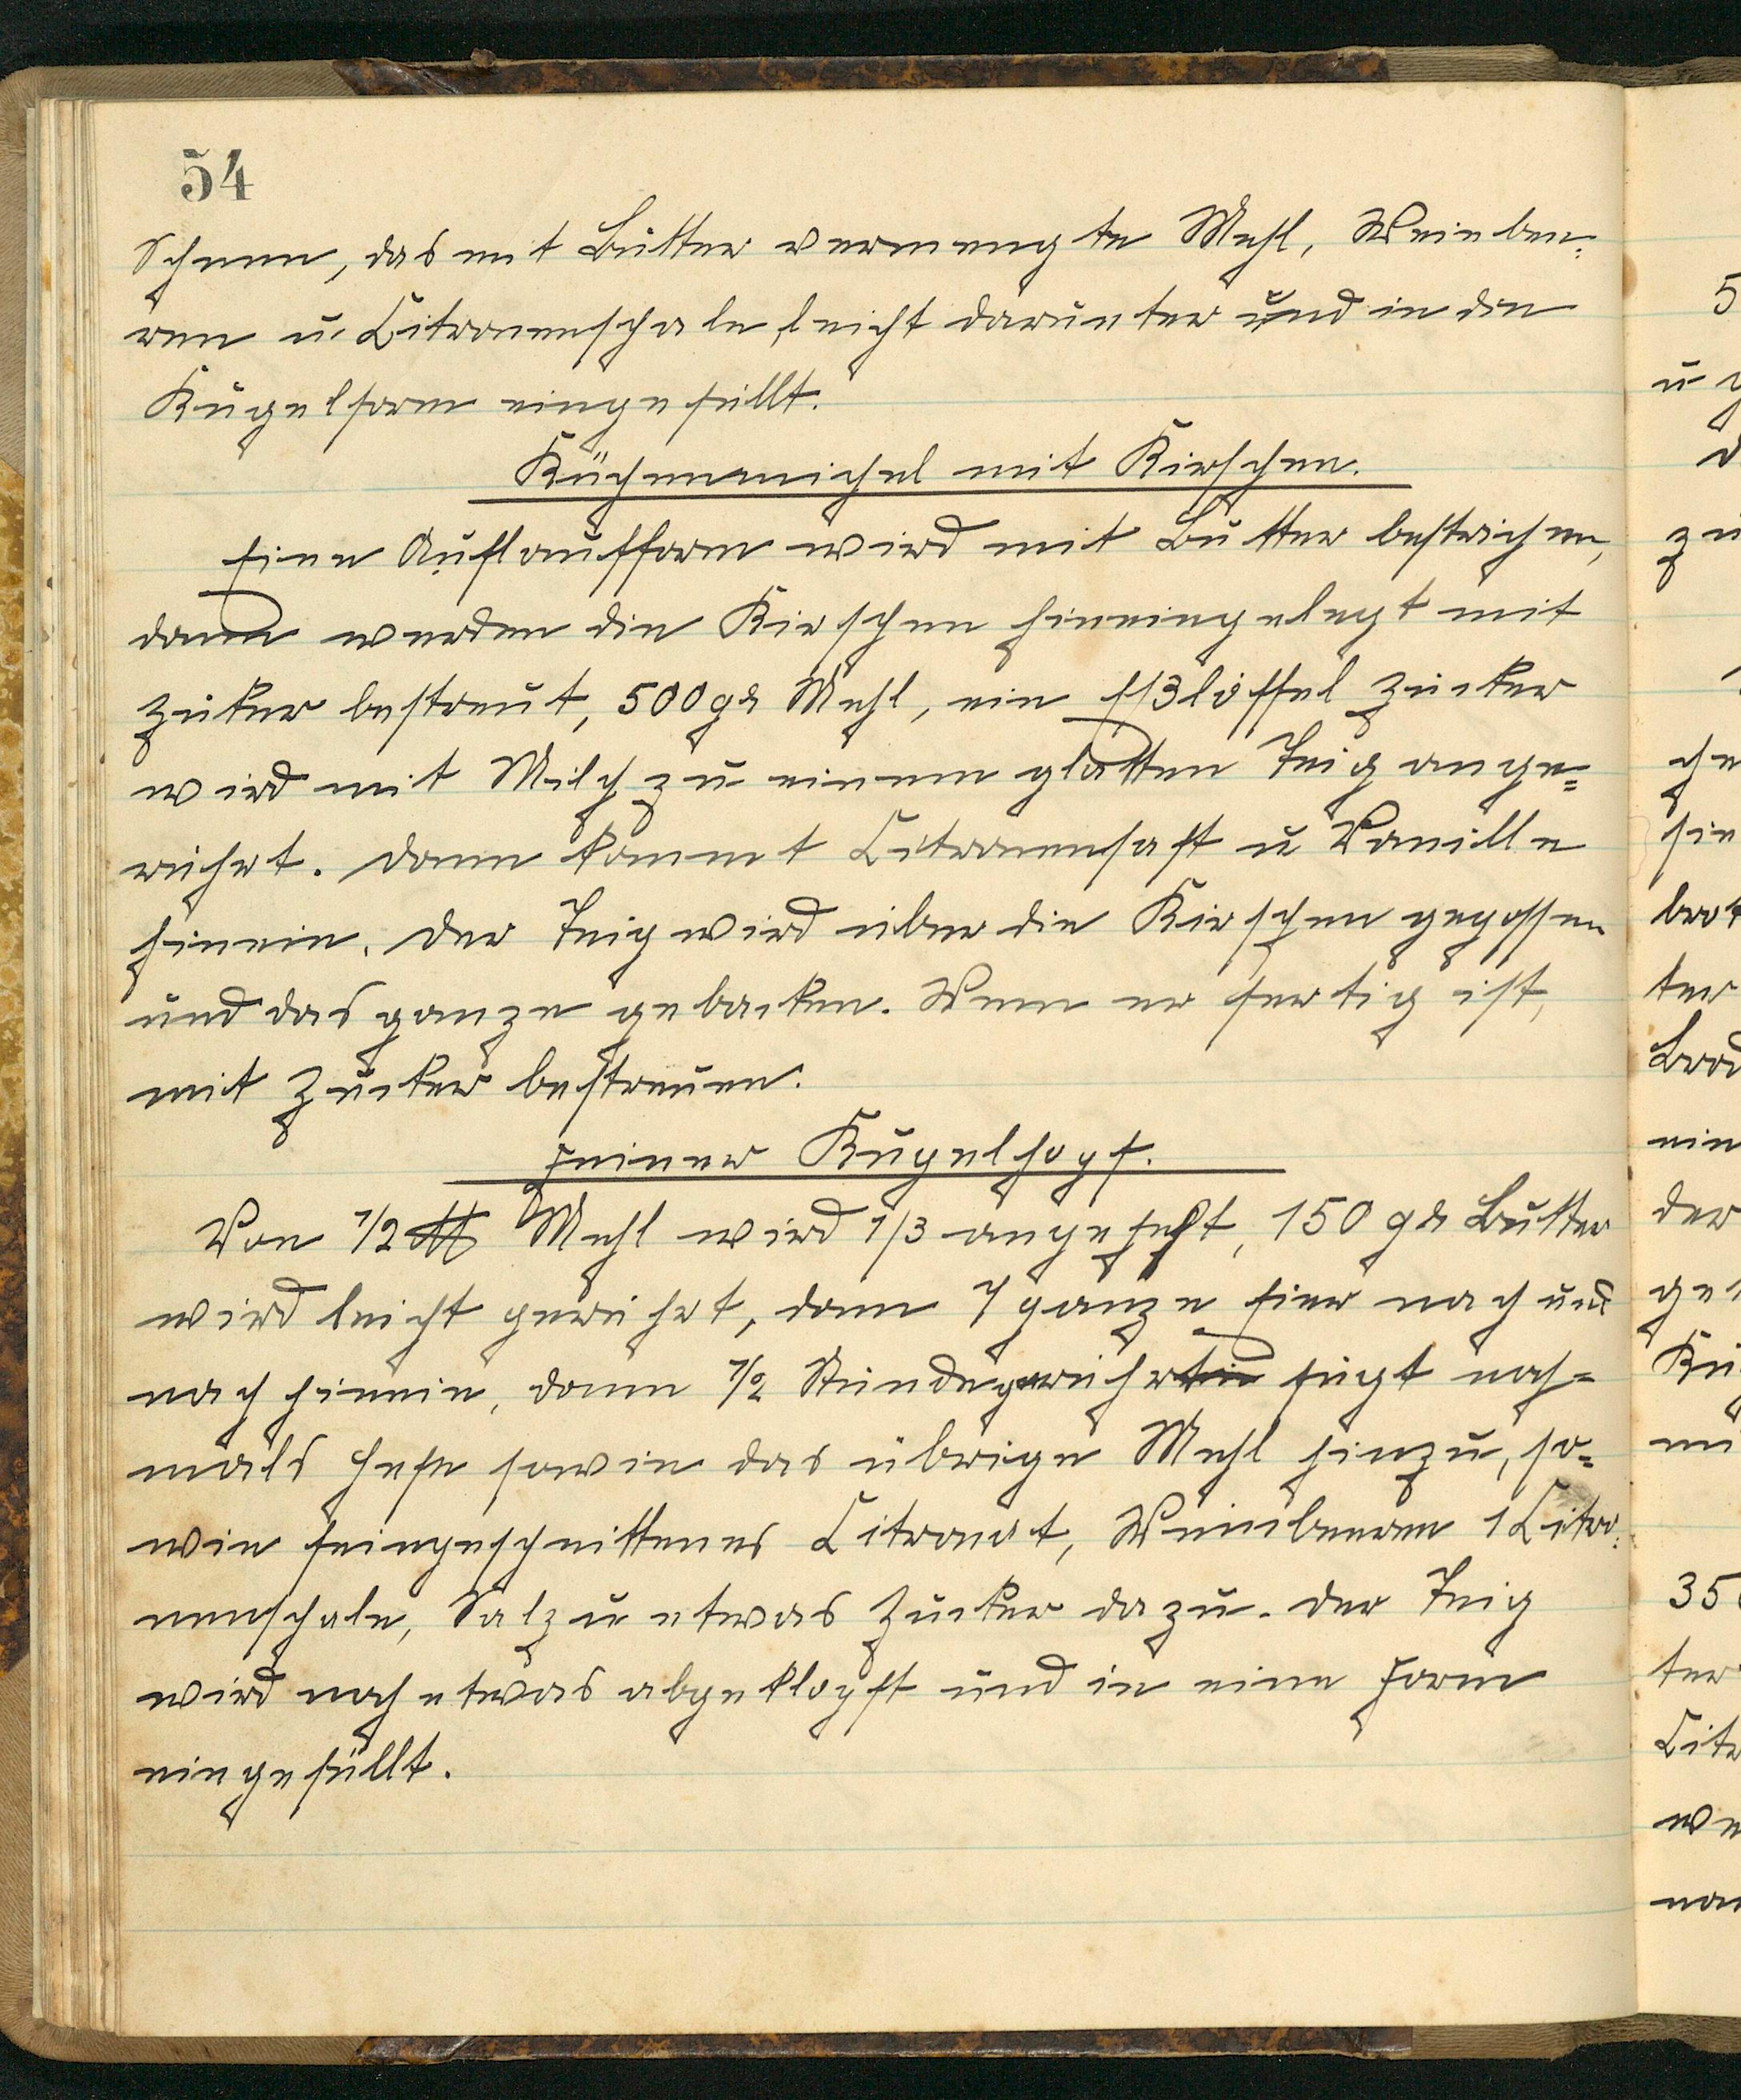 54
Schnee, das mit Butter vermengte Mehl, Weinbee:
ren u. Citronenschale leicht darunter und in die
Kugelform eingefüllt.
Küchenmichel mit Kirschen.
Eine Auflaufform wird mit Butter bestrichen,
dann werden die Kirschen hineingelegt mit
Zuker bestreut, 500 gr Mehl, ein Eßlöffel Zucker
wird mit Milch zu einem glatten Teig ange=
rührt. Dann kommt Citronensaft u Vanille
hinein. Der Teig wird über die Kirschen gegossen
und das ganze gebacken. Wenn er fertig ist,
mit Zucker bestreuen.
Feiner Kugelhopf.
Von 1/2 ℔ Mehl wird 1/3 angesetzt, 150 gr Butter
wird leicht gerührt, dann 7 ganze Eier nach und
nach hinein, dann 1/2 Stunde gerührt fügt noch=
mals Hefe sowie das übrige Mehl hinzu, so=
wie feingeschnittenes Citronat, Weinbeeren 1 Citro:
nenschale, Salz u etwas Zucker dazu. Der Teig
wird noch etwas abgeklopft und in eine Form
eingefüllt.
5
u g
d
zu
che
hin
brot
ter
Brod
ein
der
ge
Ku
35
ter
Citr
we